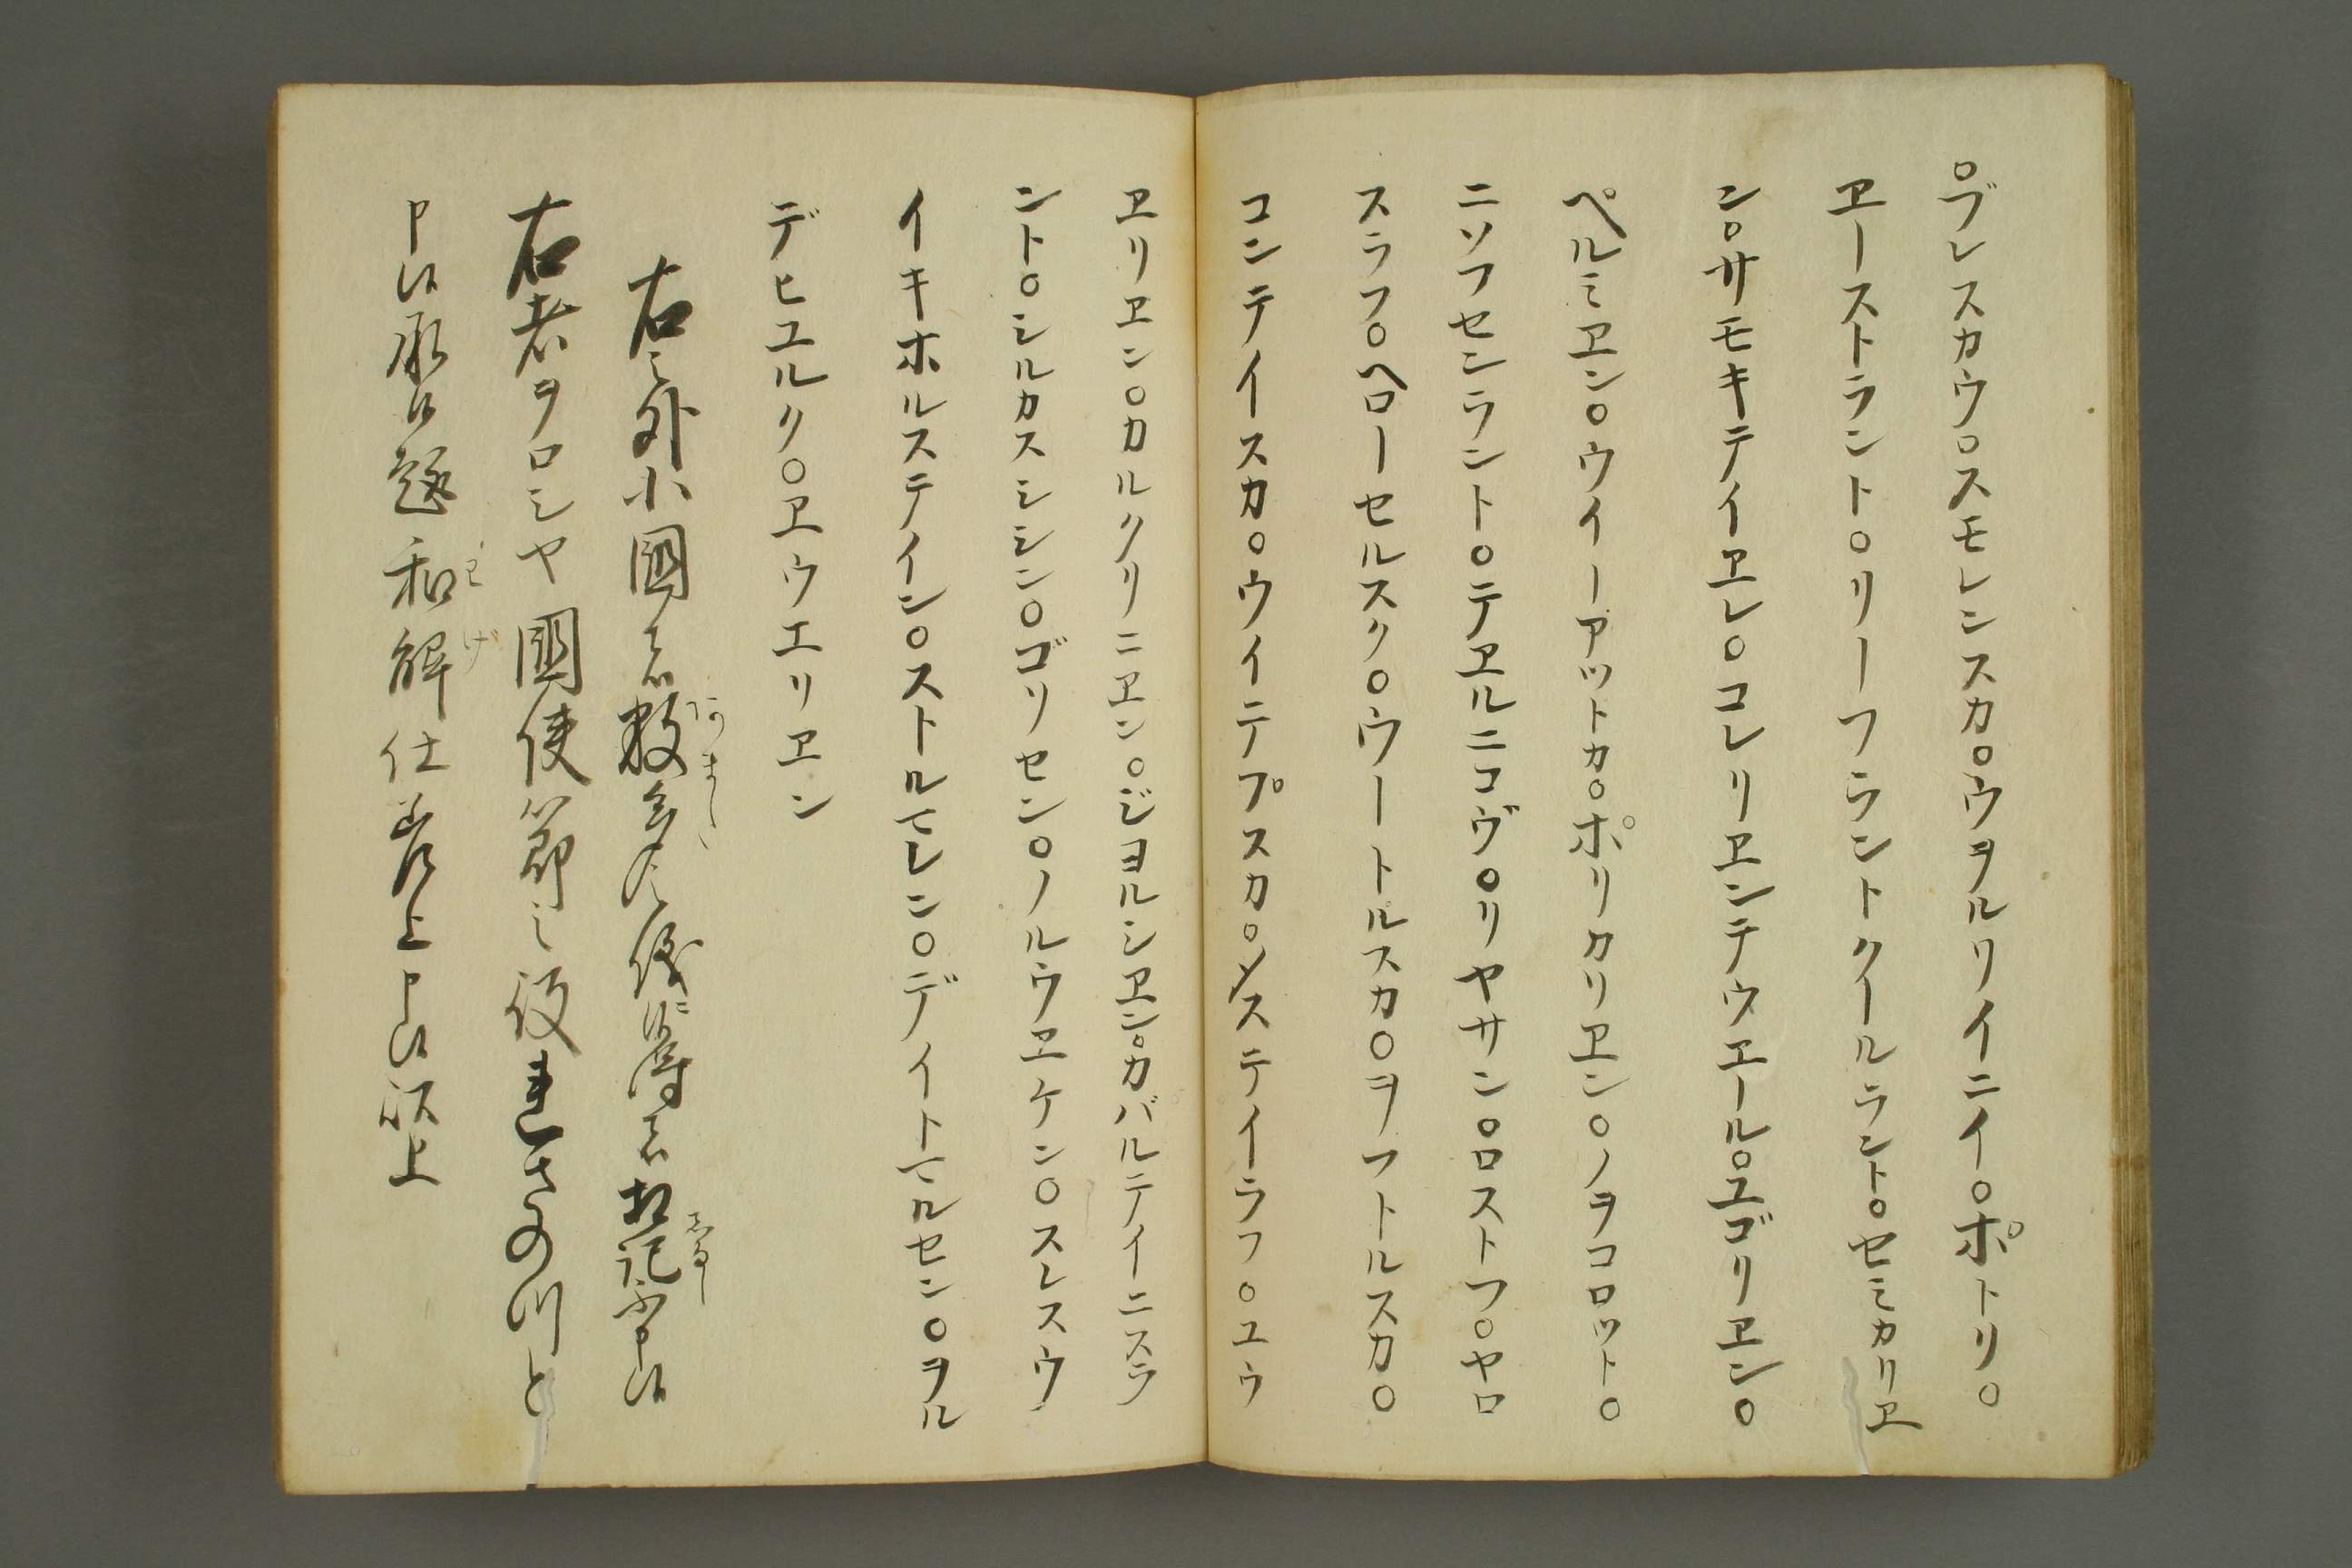 ○プレスカウ○スモレンスカ○ウヲルリイニイ○ポトリ○
ヱーストラント○リーフラントクールラント○セミカリヱ
ン○サモキテイヱレ○コレリヱンテウエール○ユゴリヱン○
ペルミヱン○ウイーアツトカ○ポリカリヱン○ノヲコロツト○
ニソフセンラント○テヱルニコヴ○リヤサン○ロストフ○ヤロ
スラフ○ヘローセルスク○ウートルスカ○ヲフトルスカ○
コンテイスカ○ウイテプスカ○ンステイラフ○ユウ
ヱリヱン○カルクリニヱン○ジヨルシヱン○カバルテイニスラ
ント○シルカスシシン○ゴリセン○ノルウヱケン○スレスウ
イキホルステイン○ストルマレン○デイトマルセン○ヲル
デヒユルク○ヱウエリヱン
右之外小國者数多候得者相記不申候
右者ヲロシヤ國使節之役れさの川と
申候承候趣和解仕差上申候以上
わげ